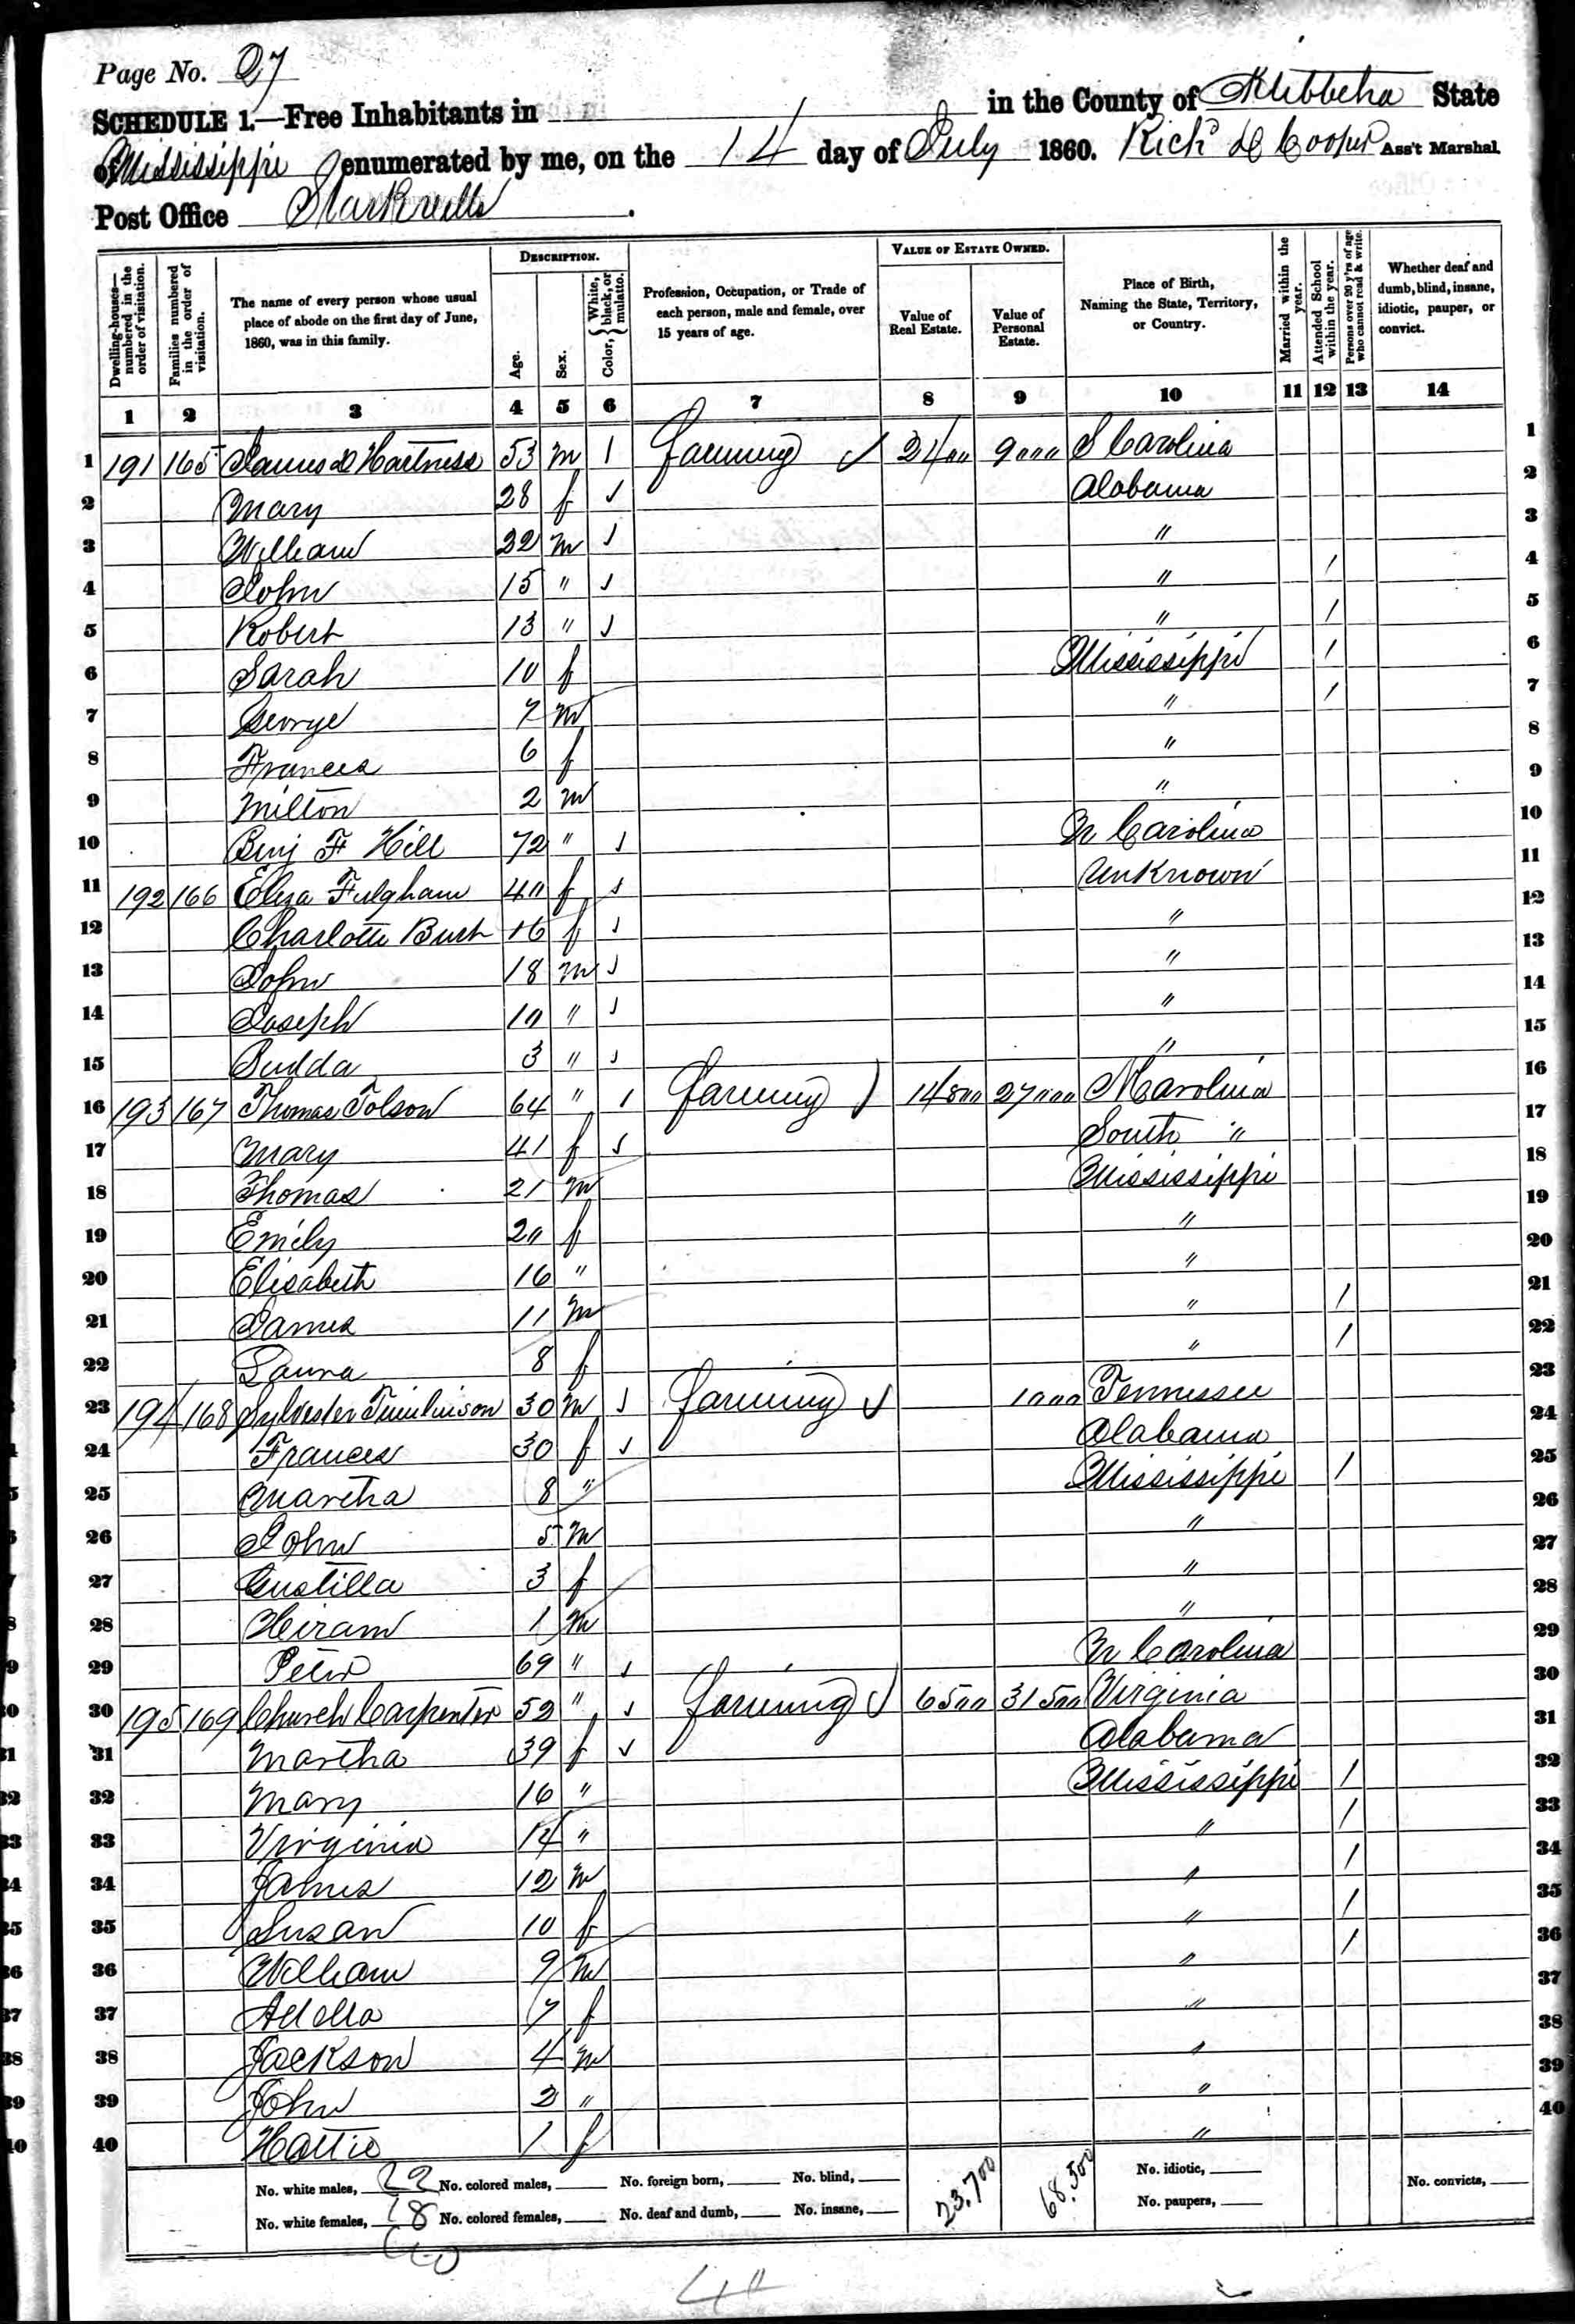 Page No. 27
SCHEDULE 1.—Free Inhabitants in in the County of Oktibbeha State
of Mississippi enumerated by me, on the 14 day of July 1860. Richd Cooper Ass't Marshal.
Post Office Starkville
Dwelling-houses—numbered in the order of visitation.
Families numbered in the order of visitation.
The name of every person whose usual place of abode on the first day of June, 1860, was in this family.
DESCRIPTION.
Age.
Sex.
Color, White, black, or mulatto.
Profession, Occupation, or Trade of each person, male and female, over 15 years of age.
VALUE OF ESTATE OWNED.
Value of Real Estate.
Value of Personal Estate.
Place of Birth, Naming the State, Territory, or Country.
Married within the year.
Attended School within the year.
Persons over 20 y'rs of age who cannot read & write.
Whether deaf and dumb, blind, insane, idiotic, pauper, or convict.
1 2 3 4 5 6 7 8 9 10 11 12 13 14
1 191 165 Hartness 53 m 1 farming 2400 9000 S Carolina 1
2 Mary 28 f Alabama 2
3 William 22 m " 3
4 John 15 " " / 4
5 Robert 13 " " / 5
6 Sarah 10 f Mississippi / 6
7 George 7 m " / 7
8 Frances 6 f " 8
9 Milton 2 m " 9
10 Benj F Hill 72 " N Carolina 10
11 192 166 Eliza Fulgham 40 f Unknown 11
12 Charlotte 16 f " 12
13 John 18 m " 13
14 Joseph 10 " " 14
15 Budda 3 " " 15
16 193 167 Thomas Tolson 64 " 1 farming 14800 27000 N Carolina 16
17 Mary 41 f South " 17
18 Thomas 21 m Mississippi 18
19 Emily 20 f " 19
20 Elisabeth 16 " " 20
21 James 11 m " / 21
22 Laura 8 f " / 22
23 194 168 Sylvester Tumlinson 30 m farming 1000 Tennessee 23
24 Frances 30 f Alabama 24
25 Martha 8 " Mississippi / 25
26 John 5 m " 26
27 3 f " 27
28 Hiram 1 m " 28
29 Peter 69 " N Carolina 29
30 195 169 Church Carpenter 52 " farming 6500 31500 Virginia 30
31 Martha 39 f Alabama 31
32 Mary 16 " Mississippi / 32
33 Virginia 14 " " / 33
34 James 12 m " / 34
35 Susan 10 f " / 35
36 William 9 m " / 36
37 7 f " 37
38 Jackson 4 m " 38
39 John 2 " " 39
40 Hattie 1 f " 40
No. white males, 22 No. colored males, No. foreign born, No. blind, 23,700 68,500 No. idiotic, No. convicts,
No. white females, 18 No. colored females, No. deaf and dumb, No. insane, No. paupers,
40
40